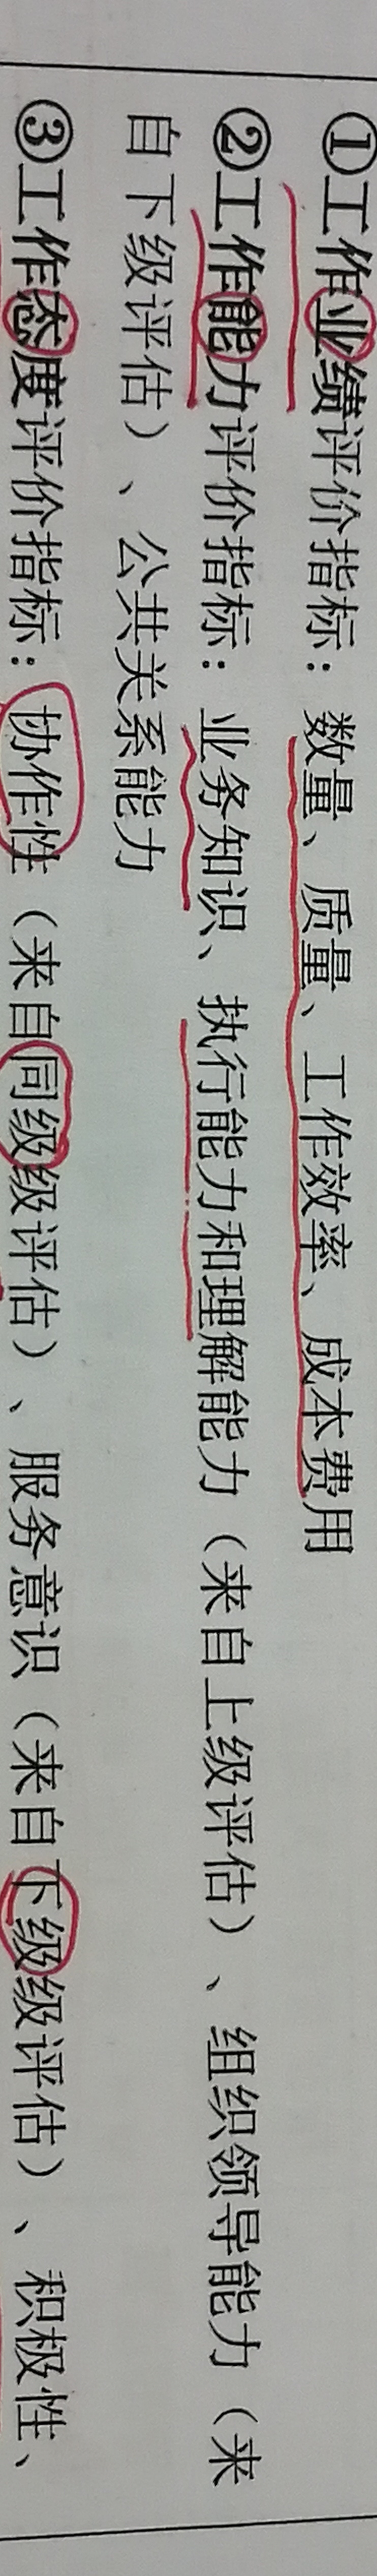 ①工作业绩评价指标：数量、质量、工作效率、成本费用
②工作能力评价指标：业务知识、执行能力和理解能力（来自上级评估）、组织领导能力（来
自下级评估）、公共关系能力
③工作态度评价指标：协作性（来自同级级评估）、服务意识（来自下级级评估）、积极性、